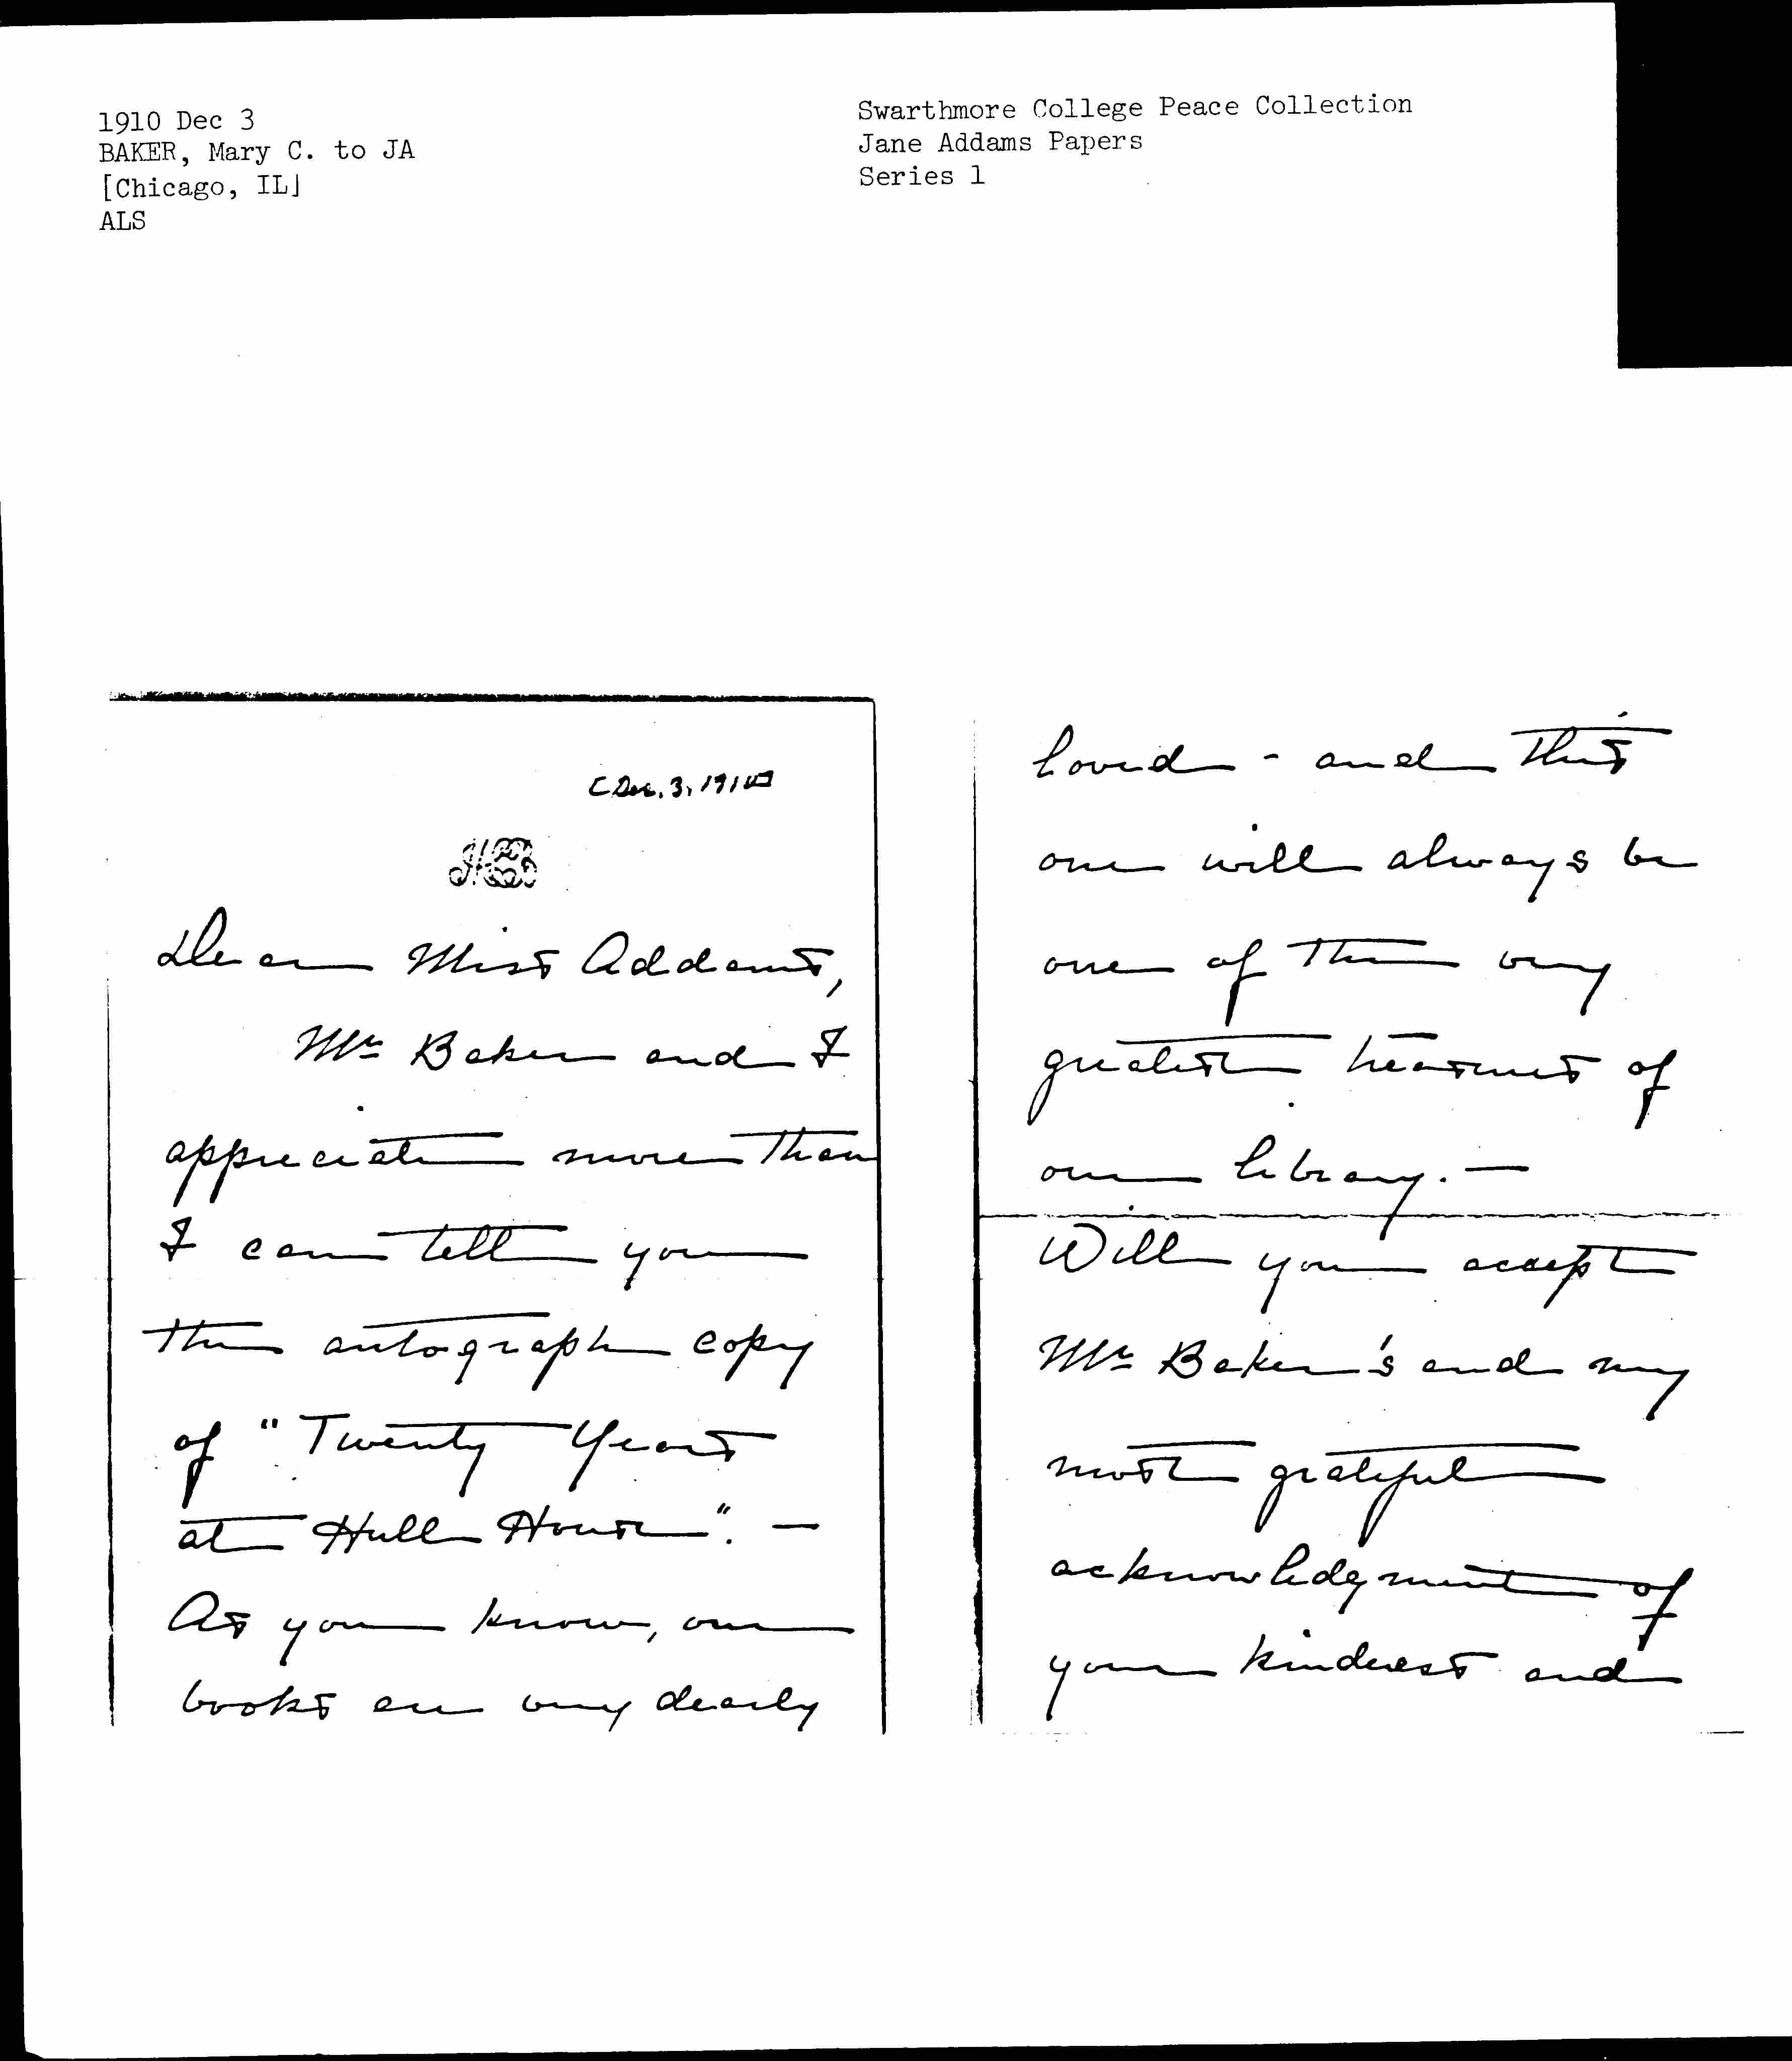 1910 Dec 3
BAKER, Mary C. to JA
[Chicago, IL]
ALS
Swarthmore College Peace Collection
Jane Addams Papers
Series 1
[Dec. 3, 1910]
Dear Miss Addams,
Mr Baker and I
appreciate more than
I can tell you
the autograph copy
of "Twenty Years
at Hull House". —
As you know, our
books are very dearly
loved - and this
one will always be
one of the very
greatest treasures of
our library. —
Will you accept
Mr Baker's and my
most grateful
acknowledgment of
your kindness and